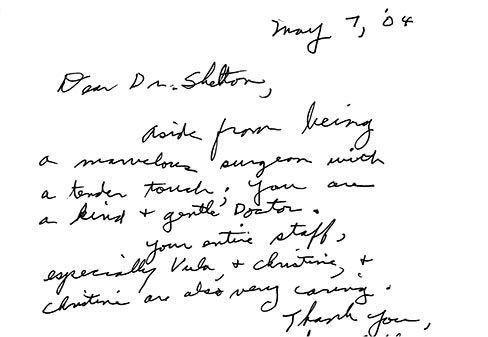 May 7, '04
Dear Dr. Shelton,
aside from being
a marvelous surgeon with
a tender touch, you are
a kind + gentle Doctor.
your entire staff,
especially Vula, + Christine, +
Christine are also very caring.
Thank you,